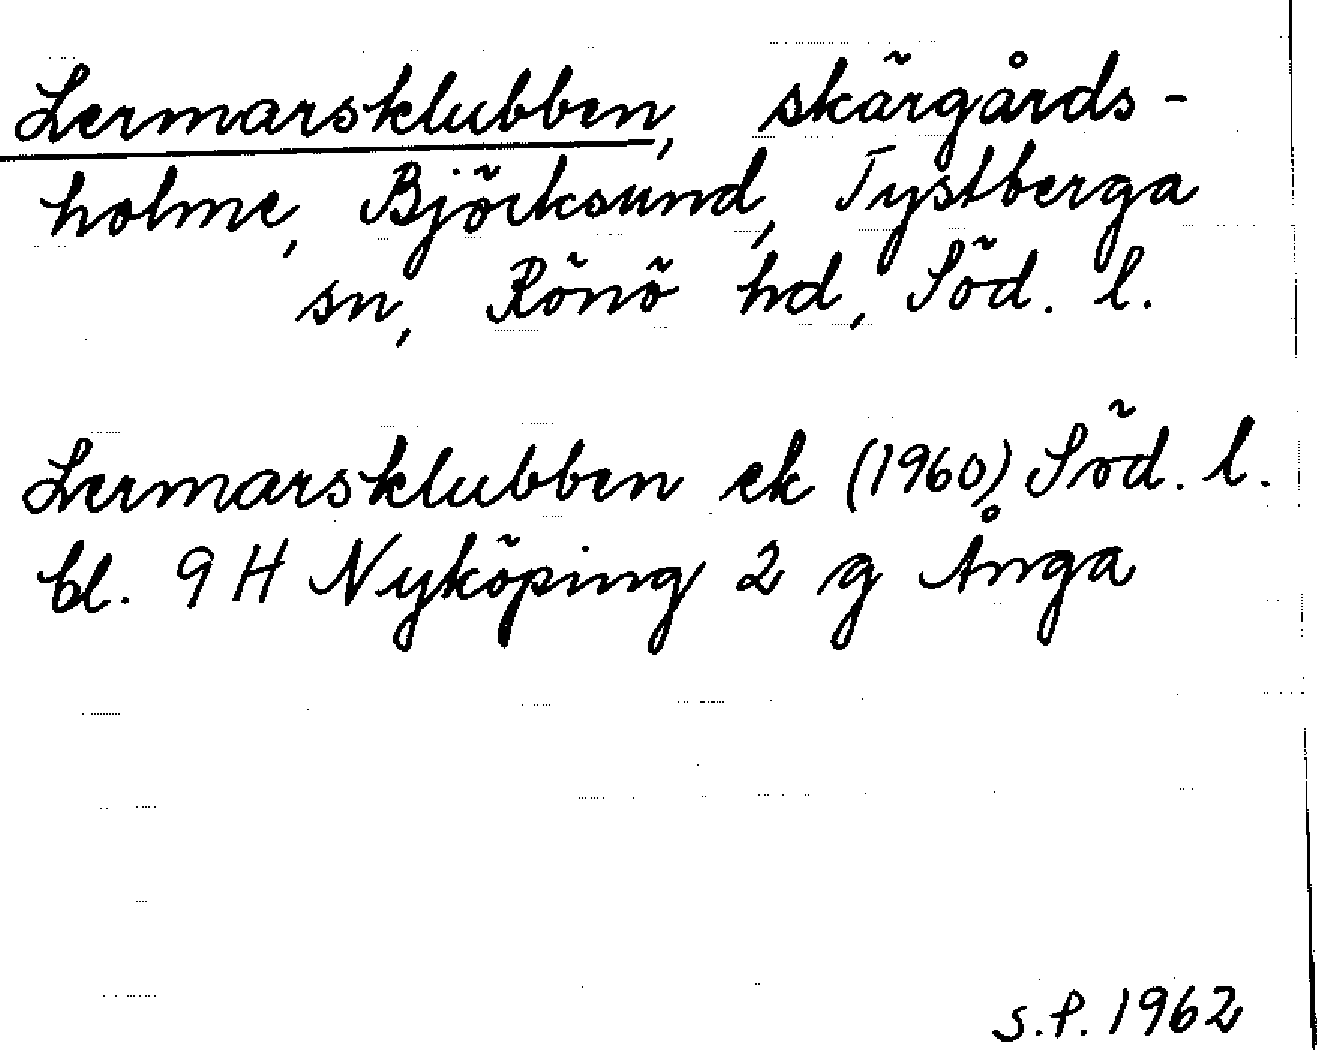 Lermarsklubben, skärgårds-
holme, Björksund, Tystberga
sn, Rönö hd, Söd. l.
Lermarsklubben ek (1960) Söd. l.
bl. 9 H Nyköping 2 g Ånga
S.P. 1962